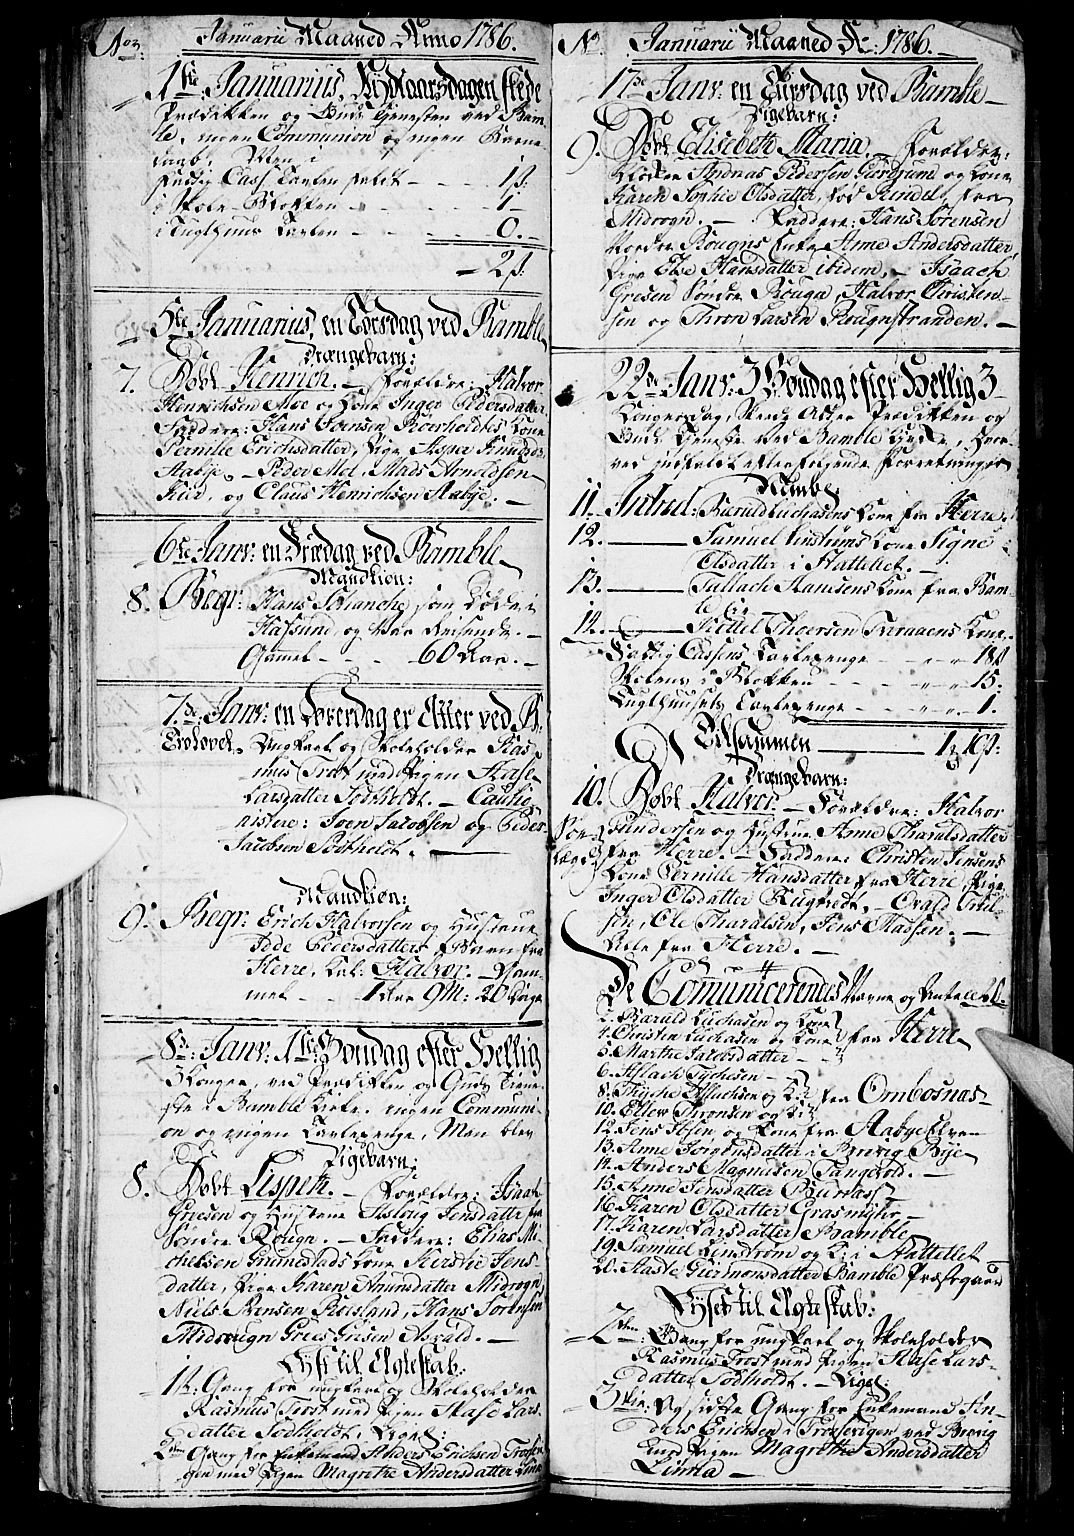 No: Januarii Maaned Anno 1786.
1ste Januarius, Nytaarsdagen skede
Prædikken og Guds Tjenesten ved Bam-
ble, ingen Communion og ingen Barne
daab, Men i
fattig Cass Tavlen faldt - - - 1 ß:
i Skole Blokken - - - - 1 -
i Tugthuus Tavlen - - - 0. -
- 2 ß:
5te Januarius, en Torsdag ved Bamble
Drængebarn:
7. Døbt Henrich. - Forældre: Halvor
Henrichsen Moe og Kone Inger Pedersdatter
Faddere: Hans Kone
Pernille Erichsdatter, Pige Knudsd:
Aabye - Peder Moe, Mads Arnoldsen
og Claus Henrichsen Aabye. -
6te Janv: en Fredag ved Bamble
Mandkiøn:
8. Begr: Hans Schanche som døde i
Hafsund og var Reisende. -
Gammel - - - 60 Aar. -
7de Janv: en Løverdag er Efter ved B.
Trolovet. Ungkarl og Skoleholder Ras-
mus Trost med Pigen Aase
Larsdatter Todtholdt. - Cautio-
nistere: Joen Jacobsen og Peder
Jacobsen Todtholdt. -
Mandkiøn:
9. Begr: Erich Halvorsen og Hustrue
Pedersdatters Barn fra
Herre, kal: Halvor. - Gam-
mel - - 1 Aar 9 M: 20 Dage
8de Janv: 1ste Søndag efter Hellig
3 Konger, ved Prædikken og Guds Tiene-
ste i Bamble Kirke. ingen Communi-
on og ingen Tavlepenge, Men blev
Pigebarn:
8. Døbt Lispeth. - Forældre: Isaach
Gresen og Hustrue Asloug Jensdatter fra
Søndre Rougn. - Faddere: Elias Mi-
chelsen Grimestads Kone Kirstie Jens-
datter, Pige Karen Amundsdatter Midrogn,
Niels Hans Sørensen
Midrougn Grees Gresen Asvald. -
Lyst til Ægteskab:
1ste Gang for ungkarl og Skoleholder
Rasmus Trost med Pigen Aase Lars-
datter Todtholdt. Ligel:
2den Gang for Enkemand Anders Erichsen
med Pigen Magrethe Andersdatter Linna
No Januarii Maaned Ao: 1786.
17de Janv: en Tirsdag ved Bamble
Pigebarn:
9. Døbt Elisebeth Maria. - Forældre:
Klokker Andreas Pedersen og Kone
Karen Sophie Olsdatter, fød fra
Midrogn. - Faddere: Hans Sørensen
Nordre Rougns Enke Anne Andersdatter,
Pige Else Hansdatter ibidem, - Isaach
Gresen Søndre Rouga, Halvor Christen-
sen og Thron Larsen Rougnstranden. -
22de Janv: 3 Søndag efter Hellig 3
Kongersdag, skede Atter Prædikken og
Guds Tieneste ved Bamble Kirke, Hvor-
ved indfaldt efterfølgende Forretninger
Nembl:
11. Introd: Barald Luchasens Kone fra Herre.
12. - Samuel Lindtrøms Kone Signe
Olsdatter i Hattetlet. -
13. - Tallach Hansens Kone fra Bam-
ble Eie -
14. - Kittel Thoersen Kone.
Fattig Cassens Tavlepenge - - - 18 ß
Skolens i Blokken - - - 15:
Tugthusets Tavlepenge - - - 1.
Tilsammen - 1 10 ß:
Drængebarn:
10. Døbt Halvor. - Forældre: Halvor
Andersen og Hustrue Anne Tharalsdatter
fra Herre. - Faddere: Christen Jensens
Kone Pernille Hansdatter fra Herre, Pige
Inger Olsdatter - Ovald
Ole Tharalsen, Jens Madsen. -
alle fra Herre. -
De Comunicerendes Navne og Antal er 20.
2. Barald Luchasen og Kone
4. Christen Luchasen og Kone fra Herre
5. Marthe Jacobsdatter - -
6. Aslach Tychesen -
8. Tyche Aslachsen og K: fra Ombosnæs -
10. Ellev Thronsen og K:
12. Jens Ifsen og Kone fra Aabye Elven
13. Anne Joronsdatter i Brevig Bye
14. Anders Magnusen Tangvod. -
15. Anne Jensdatter
16. Karen Olsdatter Grasmyhr -
17. Karen Larsdatter Bamble
19. Samuel Lindtrøm og K: i Hattetlet
20. Aaste Giermonsdatter Bamble Præstegaard
Lyst til Ægteskab:
2den Gang for ungkarl og Skoleholder
Rasmus Trost med Pigen Aase Lars-
datter Todtholdt. - Ligel:
3die Og sidste Gang for Enkemand An-
ders Erichsen i ved Brevig
med Pigen Magrethe Andersdatter
Linna -